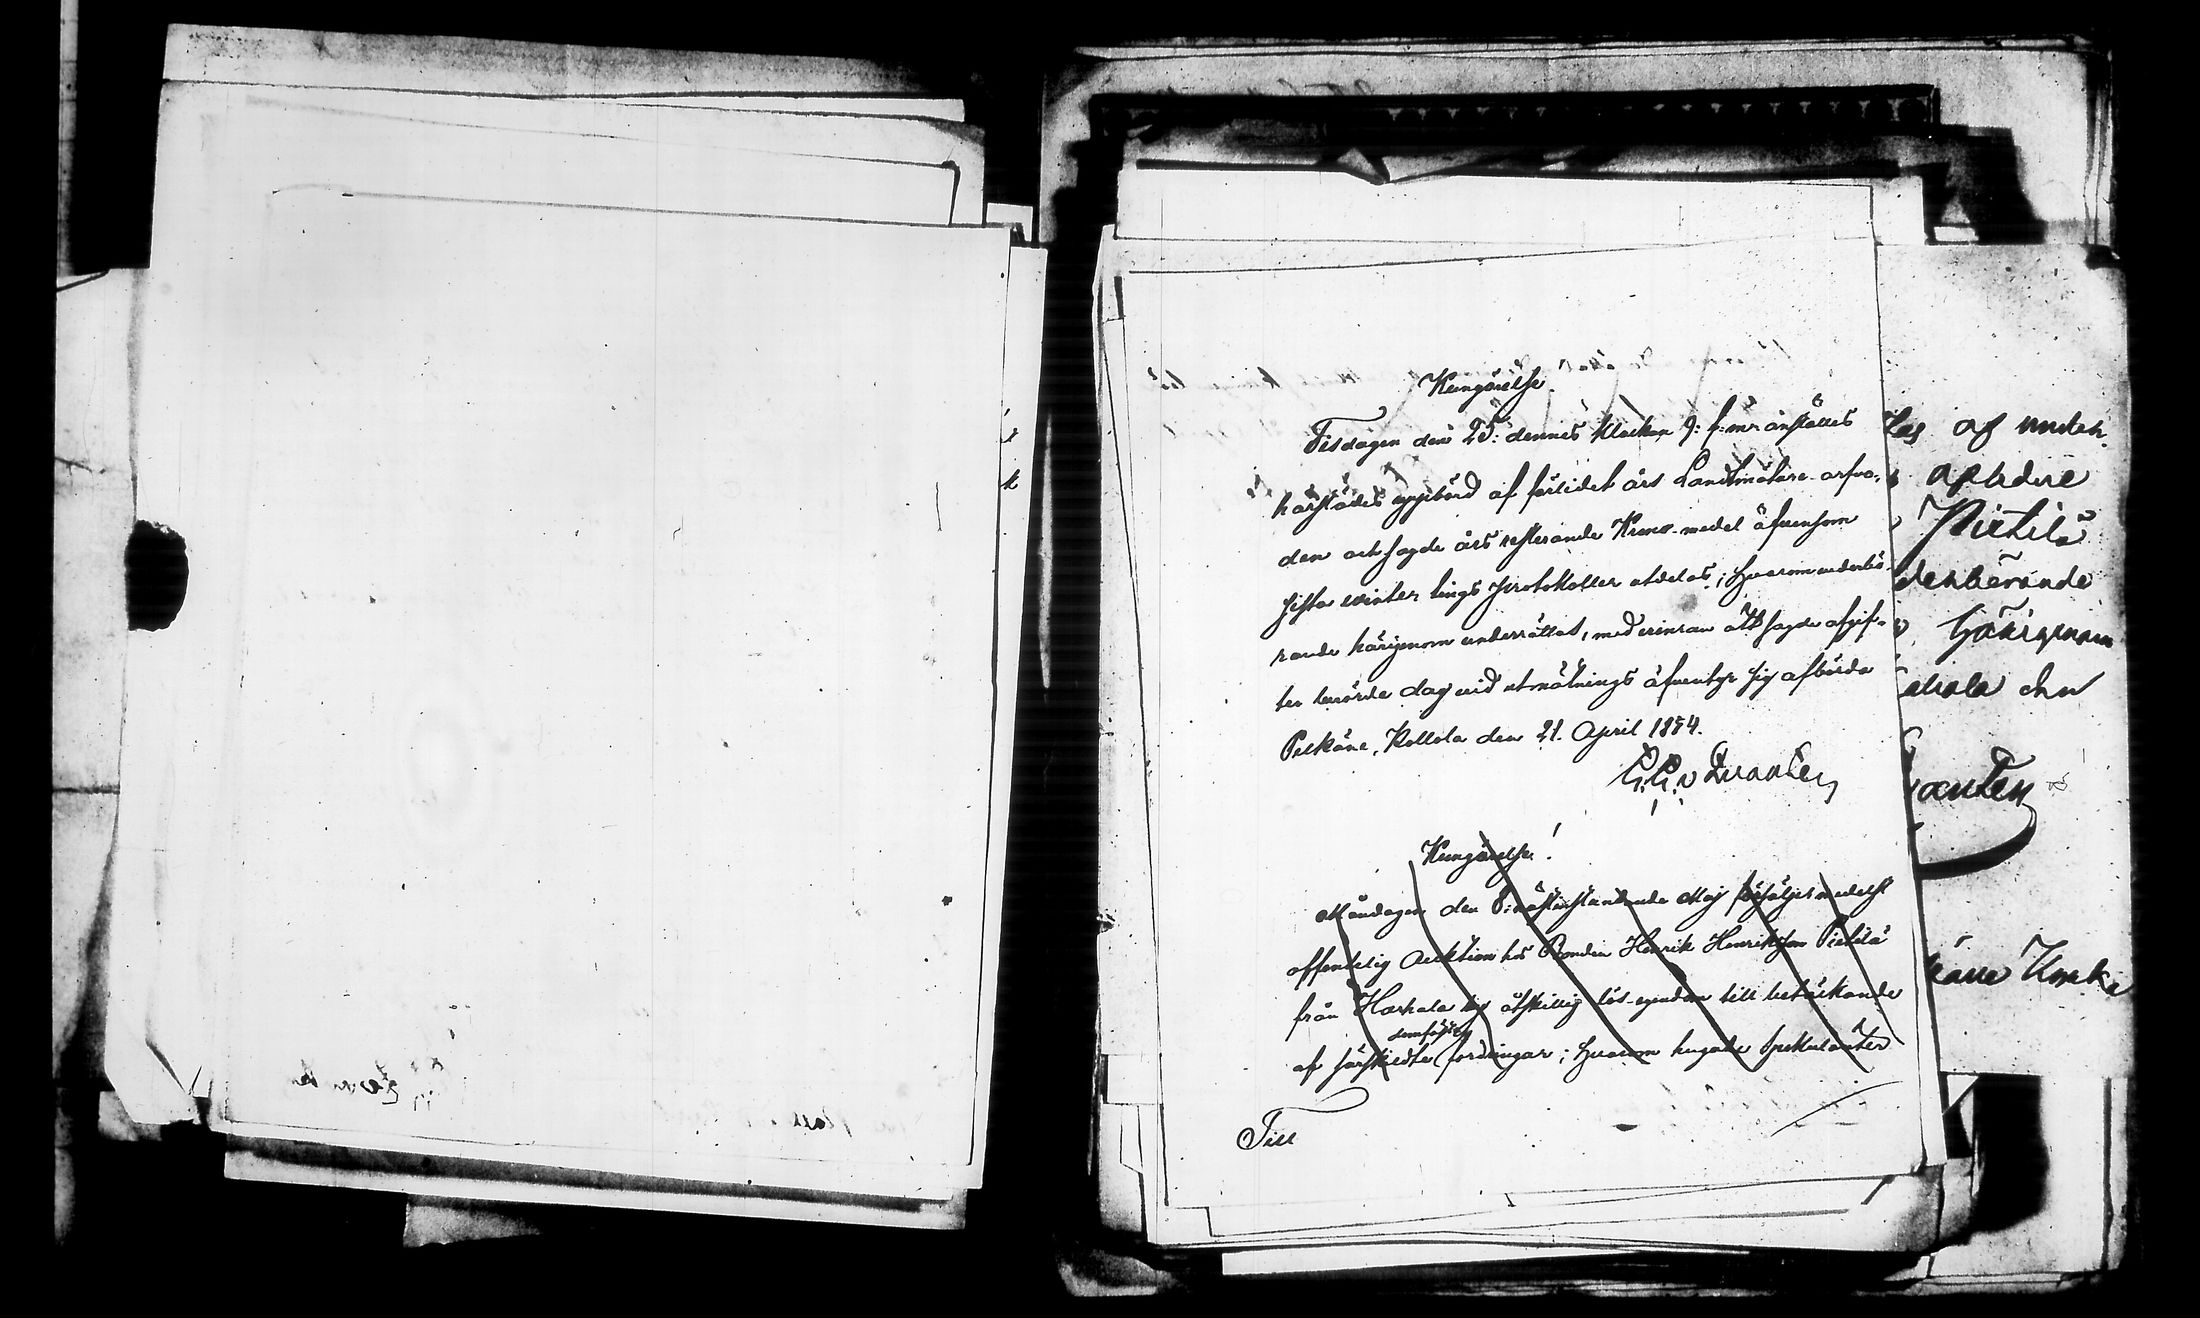 Kungörelse.
Tisdagen den 25: dennes klockan 9: f:m: anställes
härstädes uppbörd af förlidet års Landtmätare arfvo-
den och sagde års resterande Krono-medel äfvensom
sista vinter tings protokoller utdelas; hvarom vederbö-
rande härigenom underrättas, med erinran att sagde afgif-
ter berörde dag vid utmätnings äfventyr sig afbörda
Pelkäne, Kollola den 21. April 1854.
Kungörelse!
Måndagen den 8: nästinstundande Maj försäljes medelst
offentelig Auktion hos Bonden Henrik Henriksson Pietilä
från Harhala by åtskillig lös-egendom till betäckande
af särskildte somförbe fordringar; hvarom hugade Spekulanter
Till
af under
Pietilä
derbörande
härigenom
den